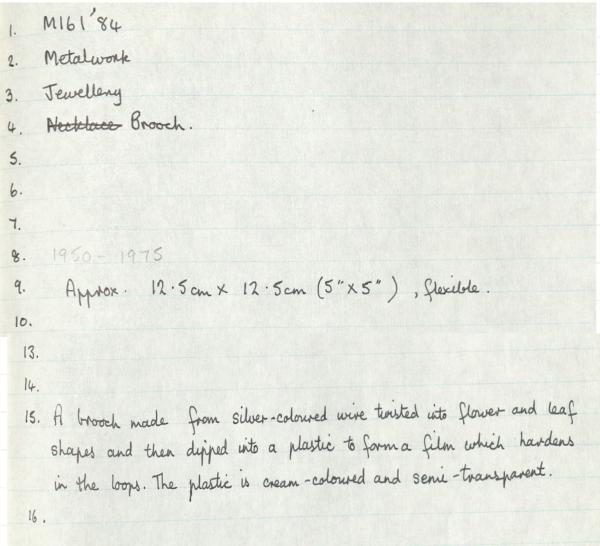 1. M161'84
2. Metalwork
3. Jewellery
4. Necklace Brooch.
5.
6.
7.
8. 1950 - 1975
9. Approx. 12.5cm x 12.5cm (5"x5"), flexible.
10.
13.
14.
15. A brooch made from silver-coloured wire twisted into flower and leaf
shapes and then dipped into a plastic to form a film which hardens
in the loops. The plastic is cream-coloured and semi-transparent.
16.